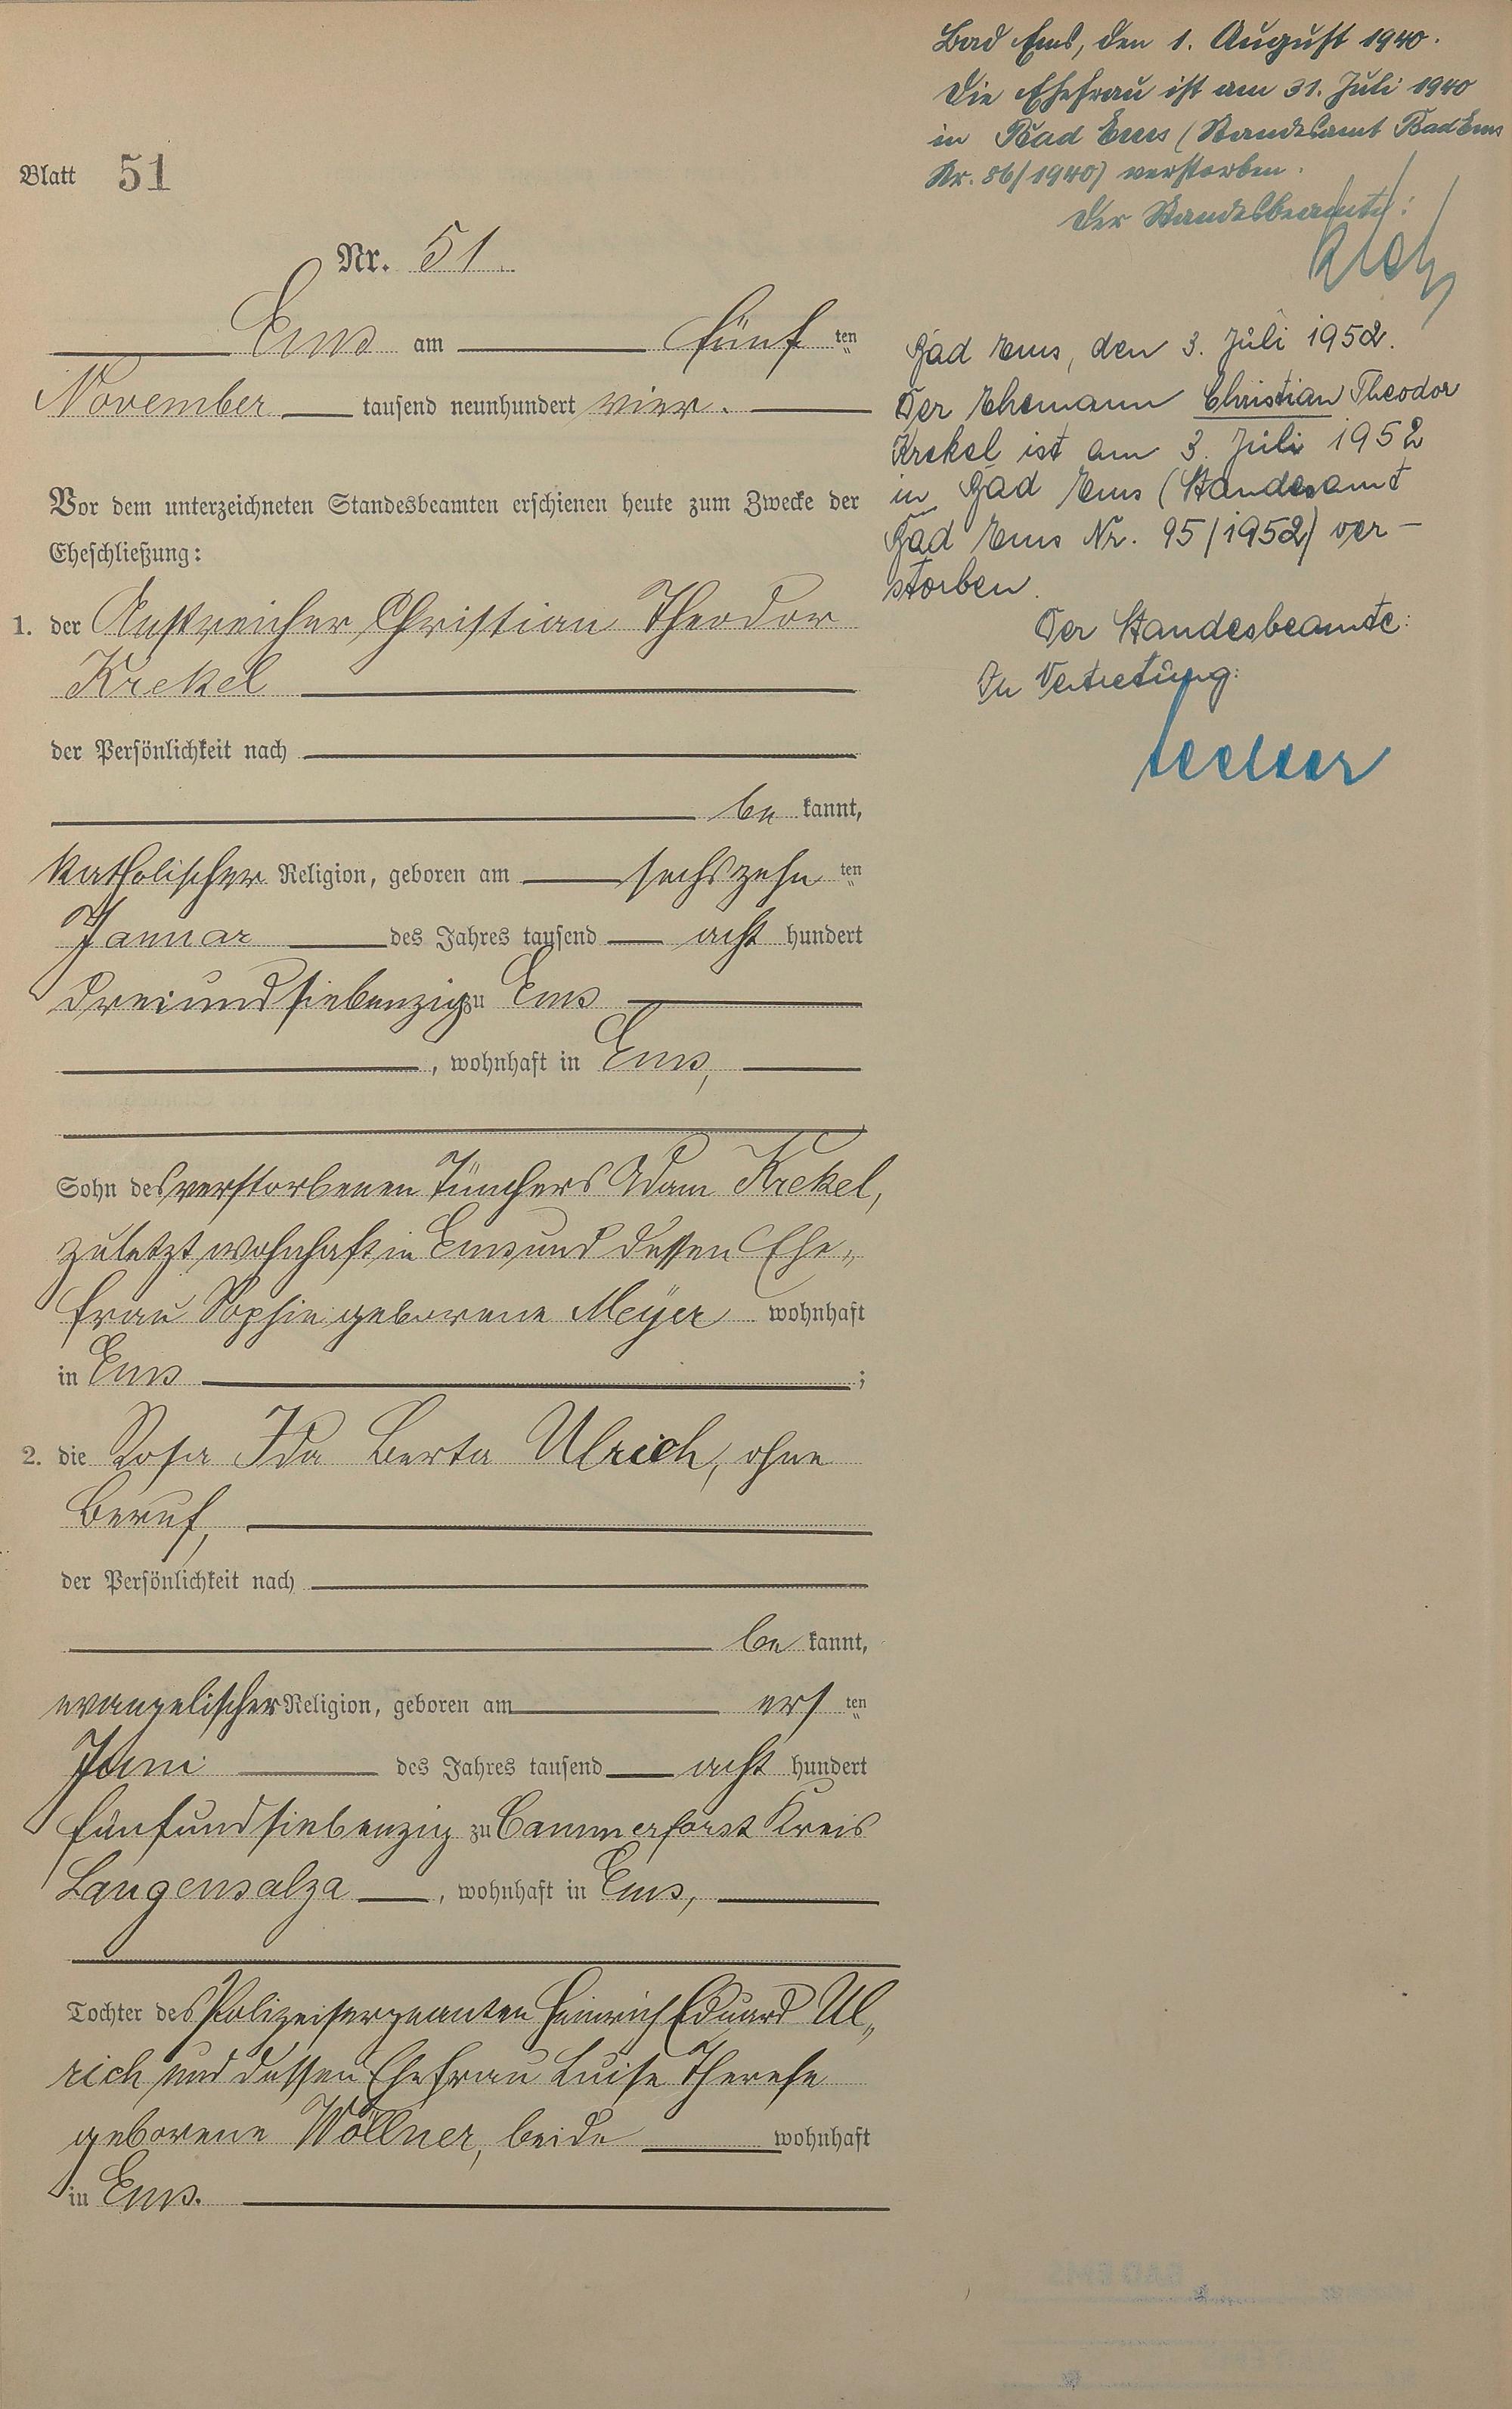 Blatt 51
Nr. 51.
Ems am fünf ten
November tausend neunhundert vier.
Vor dem unterzeichneten Standesbeamten erschienen heute zum Zwecke der
Eheschließung:
1. der Anstreicher Christian Theodor
Krekel
der Persönlichkeit nach
be kannt,
katholischer Religion, geboren am sechszehn ten
Januar des Jahres tausend acht hundert
dreiundsiebenzig zu Ems
, wohnhaft in Ems,
Sohn des verstorbenen Tünchers Adam Krekel,
zuletzt wohnhaft in Ems und dessen Ehe„
frau Sophie geborene Meyer wohnhaft
in Ems ;
2. die Rosa Ida Berta Ulrich, ohne
Beruf,
der Persönlichkeit nach
be kannt,
evangelischer Religion, geboren am ers ten
Juni des Jahres tausend acht hundert
fünfundsiebenzig zu Cammerforst Kreis
Langensalza , wohnhaft in Ems,
Tochter des Polizeisergeanten Heinrich Eduard Ul„
rich und dessen Ehefrau Luise Therese
geborene Wöllner, beide wohnhaft
in Ems.
Bad Ems, den 1. August 1940.
Die Ehefrau ist am 31. Juli 1940
in Bad Ems (Standesamt Bad Ems
Nr. 86/1940) verstorben.
Der Standesbeamte:
Bad Ems, den 3. Juli 1952.
Der Ehemann Christian Theodor
Krekel ist am 3. Juli 1952
in Bad Ems (Standesamt
Bad Ems Nr. 95/1952) ver-
storben.
Der Standesbeamte:
In Vertretung: